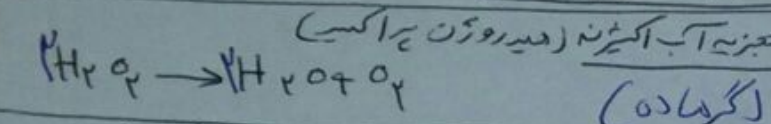 تجزیه آب اکسیژنه (هیدروژن پراکسید)
۲H۲O۲ → ۲H۲O + O۲
(گرماده)